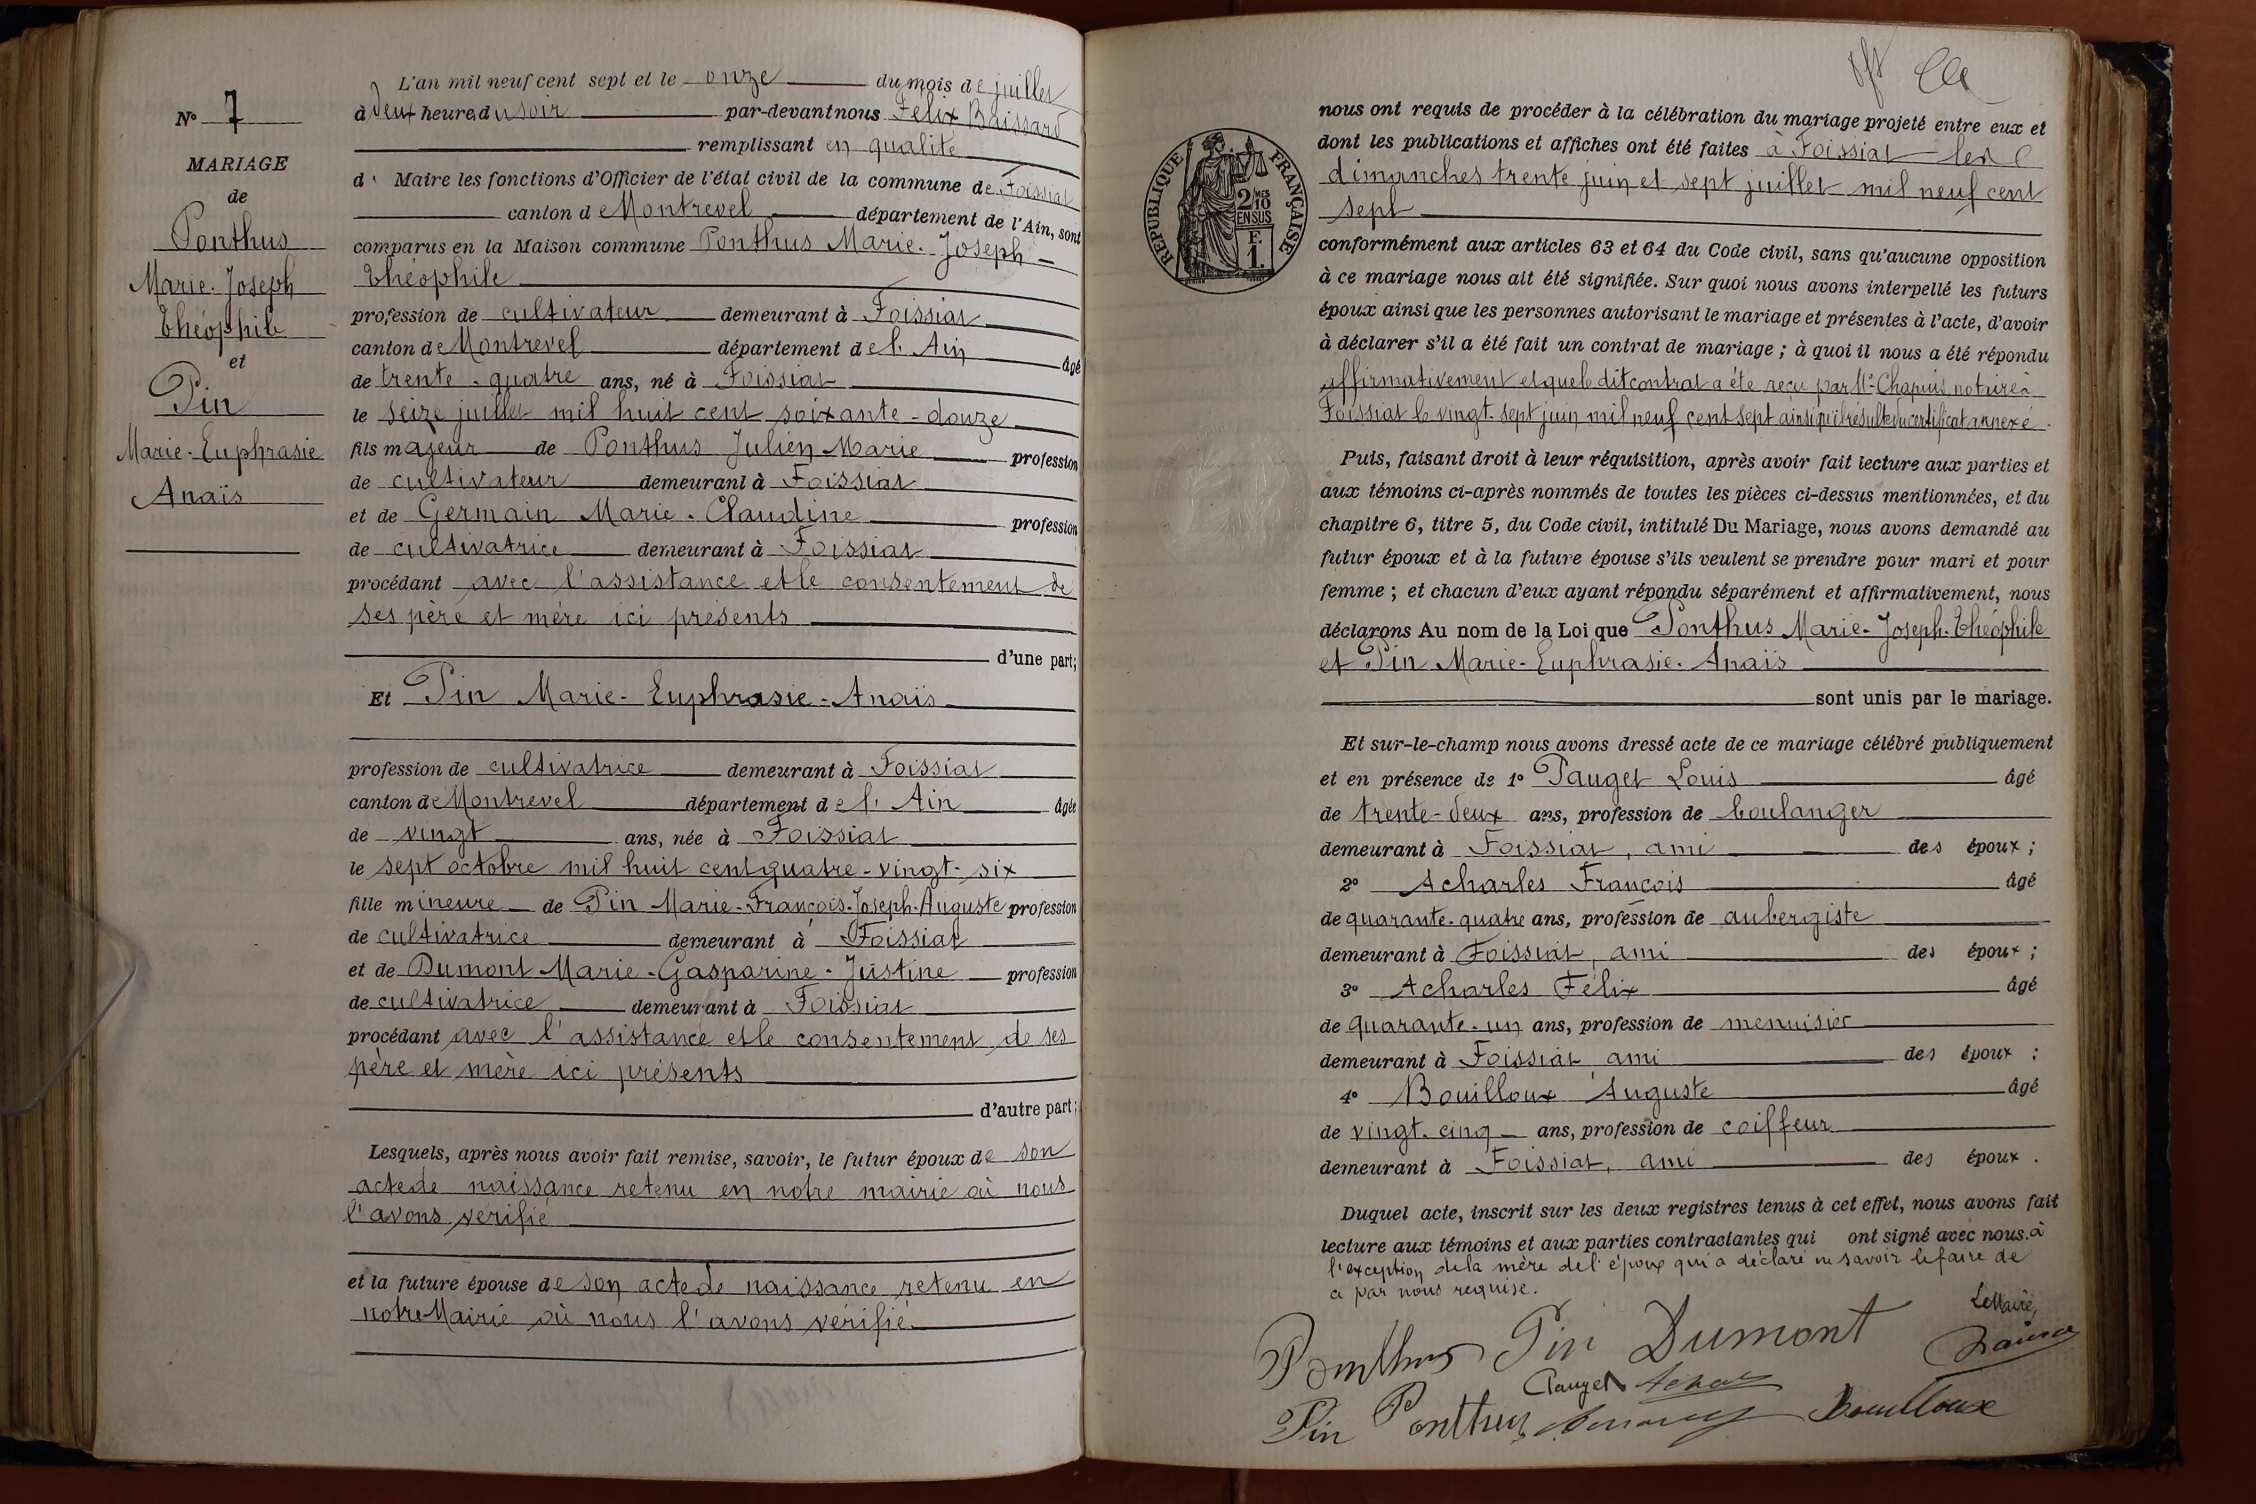 N° 7
MARIAGE
de
Ponthus
Marie-Joseph
Théophile
et
Pin
Marie-Euphrasie
Anaïs
L'an mil neuf cent sept et le onze du mois de juillet
à deux heures du soir par-devant nous Félix Baissard
remplissant en qualité
d Maire les fonctions d'Officier de l'état civil de la commune de Foissiat
canton de Montrevel département de l'Ain, sont
comparus en la Maison commune Ponthus Marie-Joseph-
Théophile
profession de cultivateur demeurant à Foissiat
canton de Montrevel département de l'Ain âgé
de trente-quatre ans, né à Foissiat
le seize juillet mil huit cent soixante-douze
fils majeur de Ponthus Julien Marie profession
de cultivateur demeurant à Foissiat
et de Germain Marie-Claudine profession
de cultivatrice demeurant à Foissiat
procédant avec l'assistance et le consentement de
ses père et mère ici présents
d'une part;
Et Pin Marie-Euphrasie-Anaïs
profession de cultivatrice demeurant à Foissiat
canton de Montrevel département de l'Ain âgée
de vingt ans, née à Foissiat
le sept octobre mil huit cent quatre-vingt-six
fille mineure de Pin Marie-François-Joseph-Auguste profession
de cultivatrice demeurant à Foissiat
et de Dumont Marie-Gasparine-Justine profession
de cultivatrice demeurant à Foissiat
procédant avec l'assistance et le consentement de ses
père et mère ici présents
d'autre part;
Lesquels, après nous avoir fait remise, savoir, le futur époux de son
acte de naissance retenu en notre mairie où nous
l'avons vérifié
et la future épouse de son acte de naissance retenu en
notre Mairie où nous l'avons vérifié.
RÉPUBLIQUE FRANÇAISE
2 MES
10
EN SUS
F.
1.
nous ont requis de procéder à la célébration du mariage projeté entre eux et
dont les publications et affiches ont été faites à Foissiat les
dimanches trente juin et sept juillet mil neuf cent
sept
conformément aux articles 63 et 64 du Code civil, sans qu'aucune opposition
à ce mariage nous ait été signifiée. Sur quoi nous avons interpellé les futurs
époux ainsi que les personnes autorisant le mariage et présentes à l'acte, d'avoir
à déclarer s'il a été fait un contrat de mariage ; à quoi il nous a été répondu
affirmativement et que le dit contrat a été reçu par Me Chapuis notaire à
Foissiat le vingt-sept juin mil neuf cent sept ainsi qu'il résulte du certificat annexé.
Puis, faisant droit à leur réquisition, après avoir fait lecture aux parties et
aux témoins ci-après nommés de toutes les pièces ci-dessus mentionnées, et du
chapitre 6, titre 5, du Code civil, intitulé Du Mariage, nous avons demandé au
futur époux et à la future épouse s'ils veulent se prendre pour mari et pour
femme ; et chacun d'eux ayant répondu séparément et affirmativement, nous
déclarons Au nom de la Loi que Ponthus Marie-Joseph-Théophile
et Pin Marie-Euphrasie-Anaïs
sont unis par le mariage.
Et sur-le-champ nous avons dressé acte de ce mariage célébré publiquement
et en présence de 1° Pauget Louis âgé
de trente-deux ans, profession de boulanger
demeurant à Foissiat, ami des époux ;
2° Acharles François âgé
de quarante-quatre ans, profession de aubergiste
demeurant à Foissiat, ami des époux ;
3° Acharles Félix âgé
de quarante-un ans, profession de menuisier
demeurant à Foissiat, ami des époux ;
4° Bouilloux Auguste âgé
de vingt-cinq ans, profession de coiffeur
demeurant à Foissiat, ami des époux .
Duquel acte, inscrit sur les deux registres tenus à cet effet, nous avons fait
lecture aux témoins et aux parties contractantes qui ont signé avec nous. à
l'exception de la mère de l'époux qui a déclaré ne savoir le faire de
ce par nous requise.
Le Maire,
Ponthus Pin Dumont
Pauget
Pin Ponthus Bouilloux